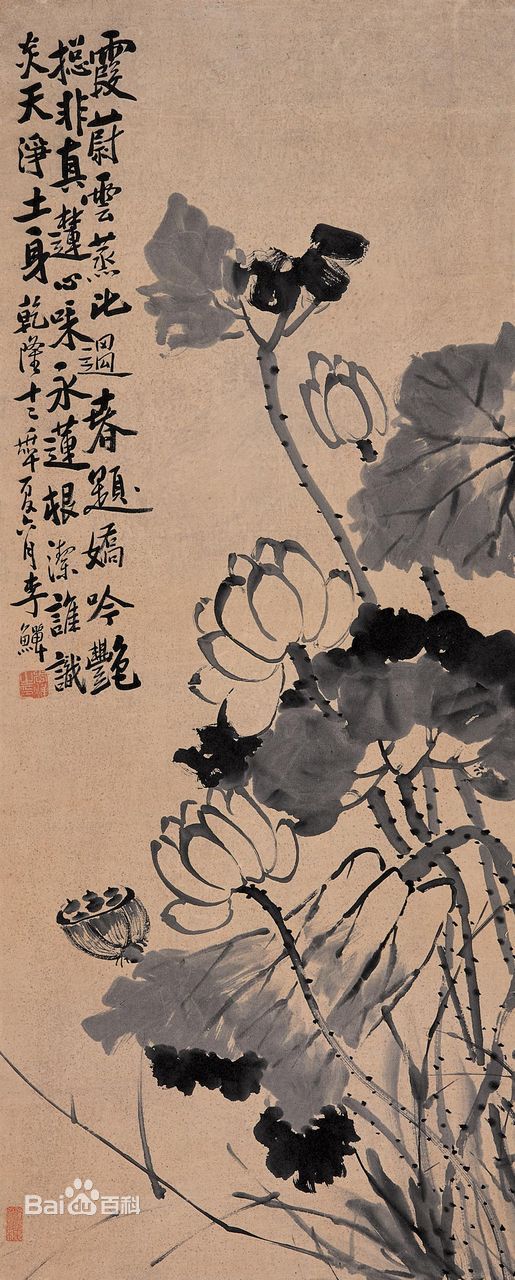 霞蔚雲蒸比春題嬌吟艷
摠非真蓮心味永蓮根潔誰識
炎天淨土身乾隆十二年夏六月李鱓
Bai百科